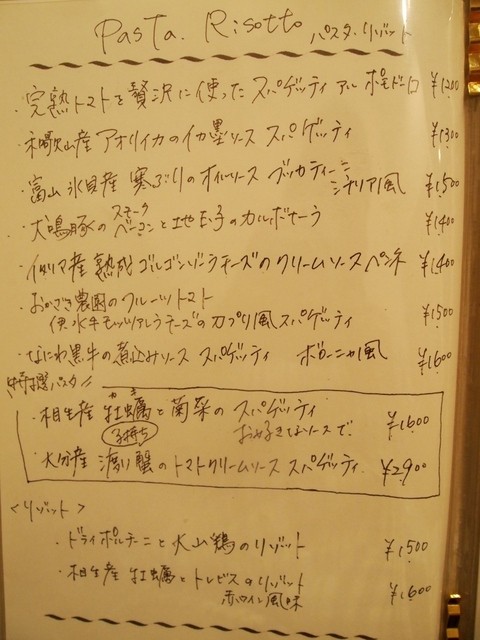 Pasta. Risotto パスタ・リゾット
・完熟トマトを贅沢に使った スパゲッティ アル ポモドーロ ¥1200
・和歌山産 アオリイカのイカ墨ソース スパゲッティ ¥1300
・富山 氷見産 寒ぶりのオイルソース ブッカティーニ
シチリア風 ¥1,500
・犬鳴豚のスモークベーコンと地玉子のカルボナーラ ¥1400
・イタリア産 熟成ゴルゴンゾーラチーズのクリームソース ペンネ ¥1,400
・おかざき農園のフルーツトマト
伊 水牛モッツァレラチーズのカプリ風スパゲッティ ¥1500
・なにわ黒牛の煮込みソース スパゲッティ ボローニャ風 ¥1600
特選パスタ
・相生産 牡蠣と菊菜のスパゲッティ ¥1600
カキ
子持ち
お好きなソースで
・大分産 渡り蟹のトマトクリームソース スパゲッティ ¥2900
<リゾット>
・ドライポルチーニと大山鶏のリゾット ¥1500
・相生産 牡蠣とトレビスのリゾット
赤ワイン風味 ¥1600